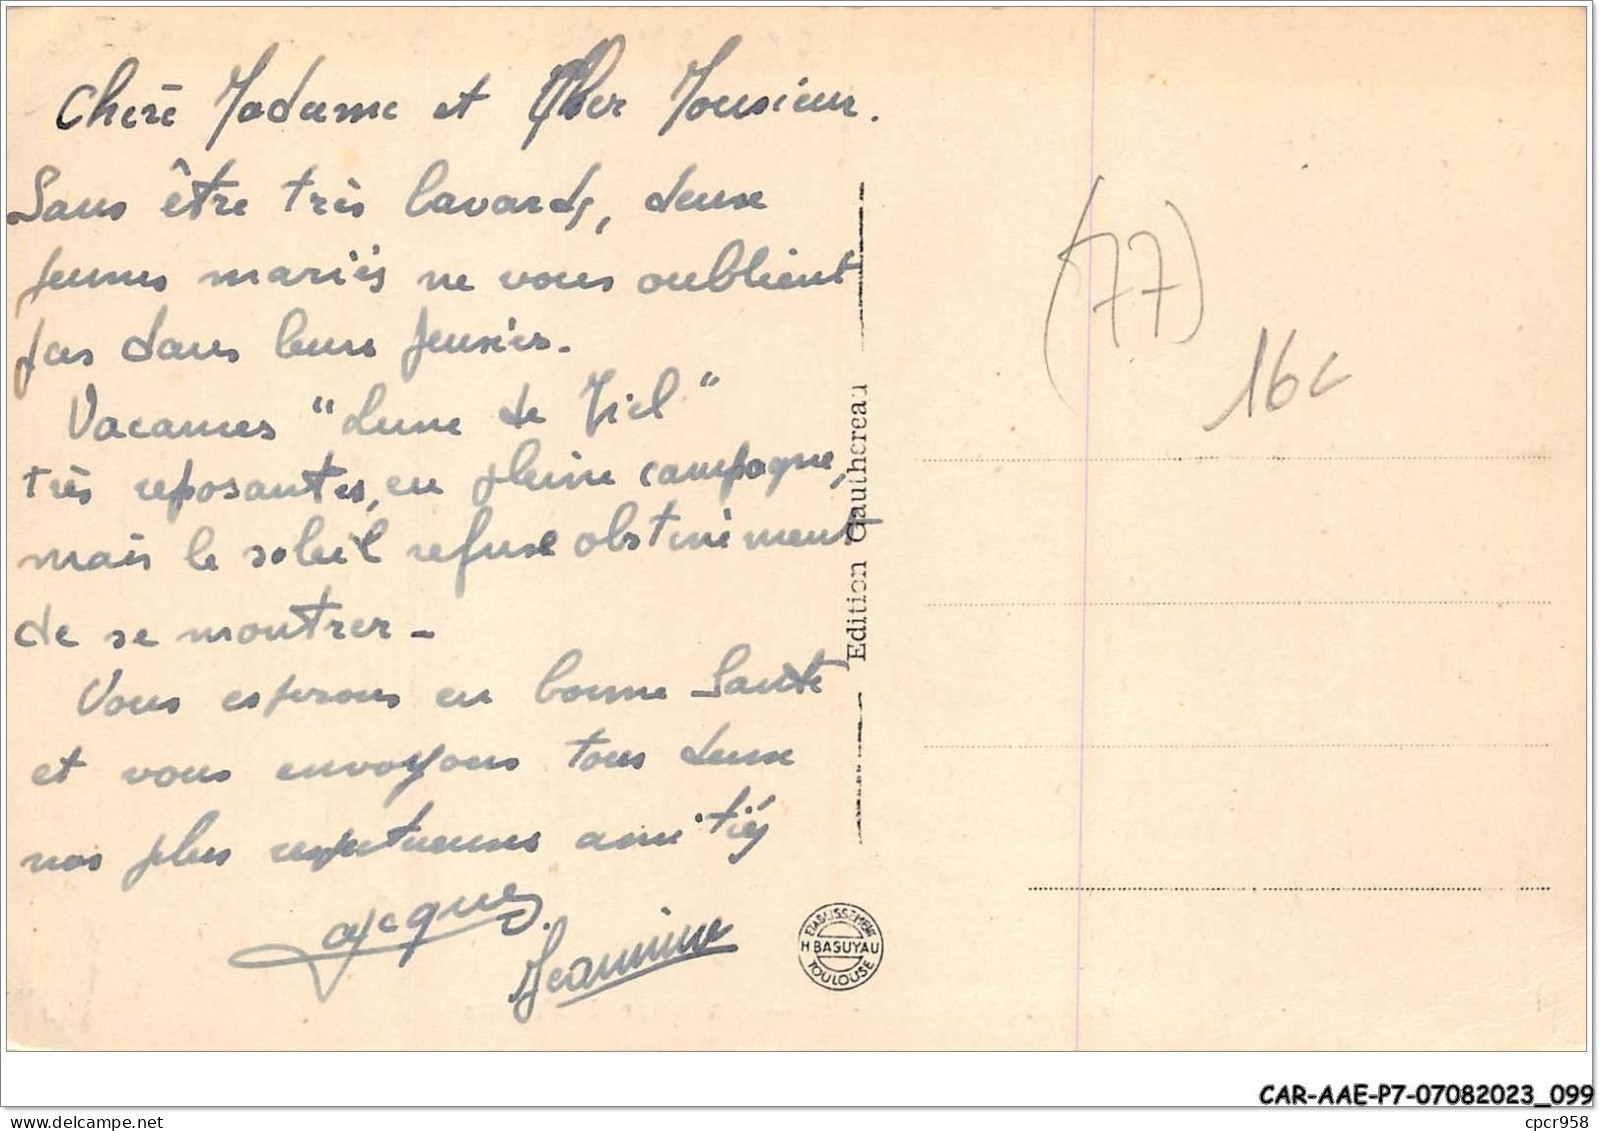 Chère Madame et Cher Monsieur.
Sans être très bavards, deux
jeunes mariés ne vous oublient
pas dans leurs pensées.
Vacances "Lune de Miel"
très reposantes, en pleine campagne,
mais le soleil refuse obstinément
de se montrer -
Vous espérons en bonne Santé
et vous envoyons tous deux
nos plus respectueuses amitiés
Jacques.
Jeannine
Edition Gauthereau
ETABLISSEMENT
H BASUYAU
TOULOUSE
(77)
16c
CAR-AAE-P7-07082023_099
delcampe.net
cpcr958